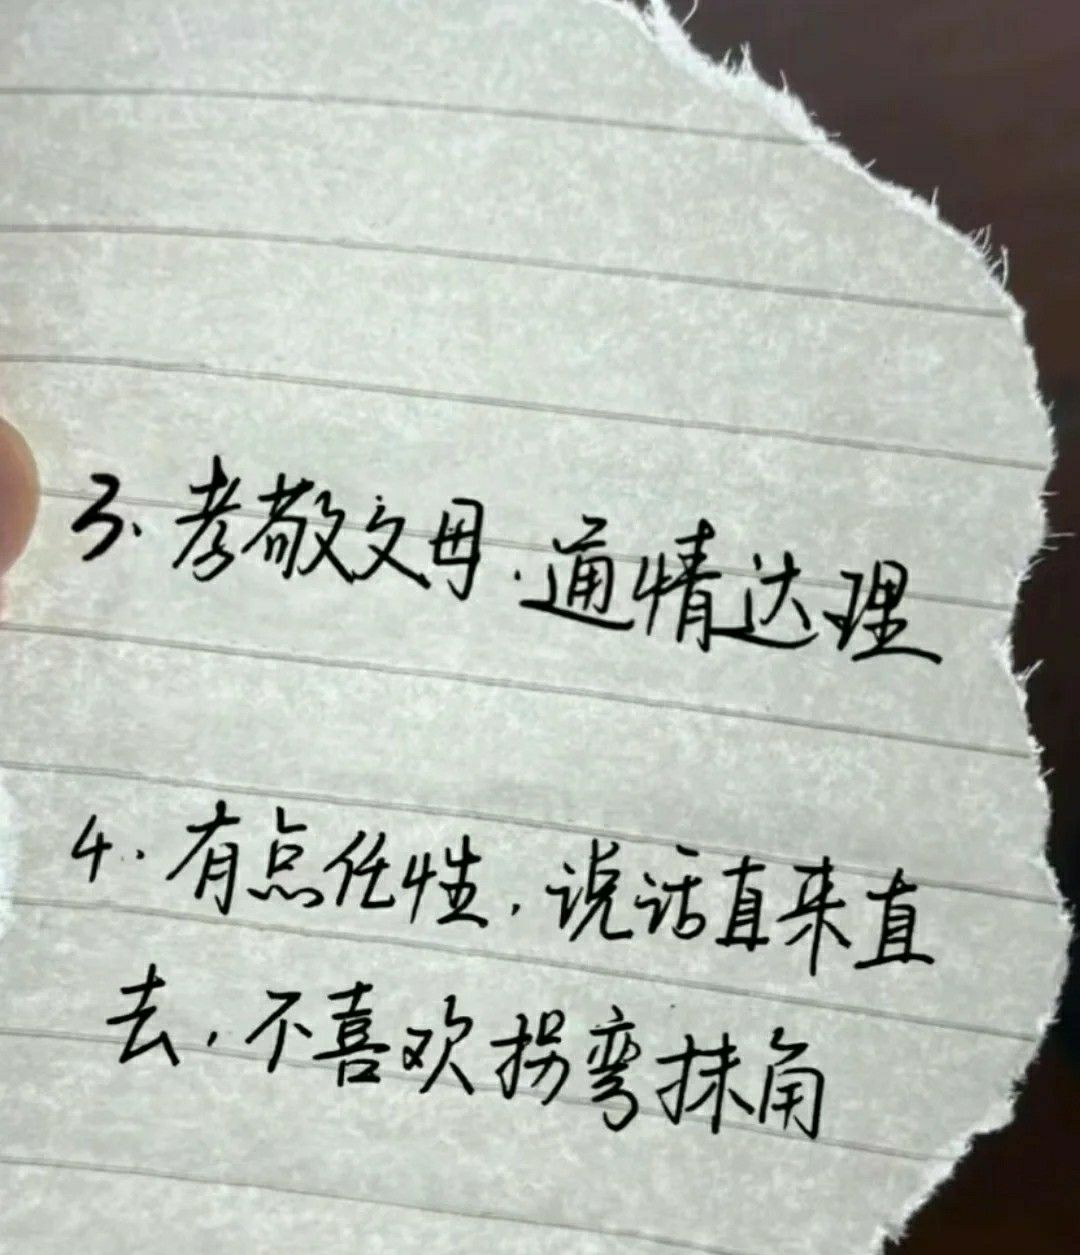 3. 孝敬父母.通情达理
4. 有点任性,说话直来直
去,不喜欢拐弯抹角